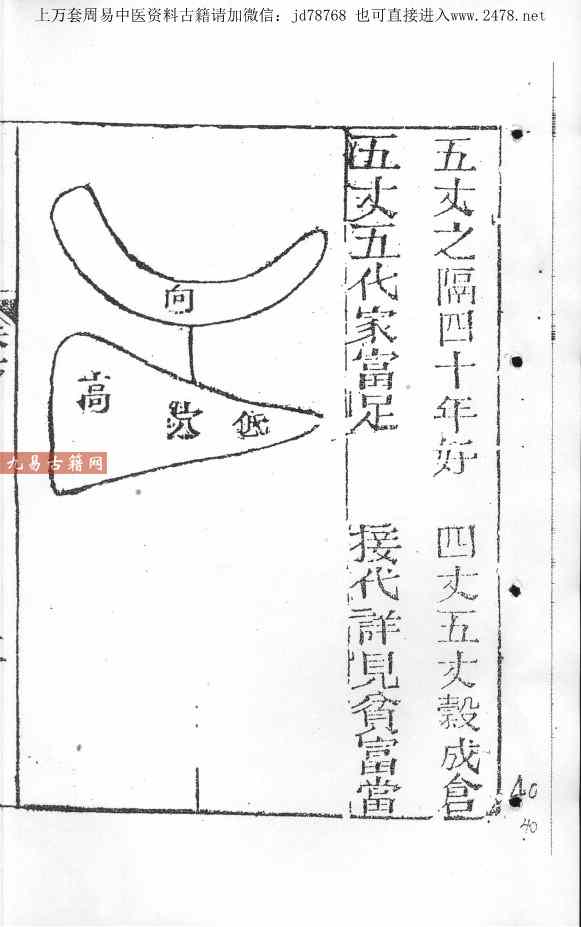 上万套周易中医资料古籍请加微信：jd78768 也可直接进入www.2478.net
五丈之隔四十年好 四丈五丈穀成倉
五丈五代家富足 接代詳見貧富當
向
高 穴 低
九易古籍网
40
40